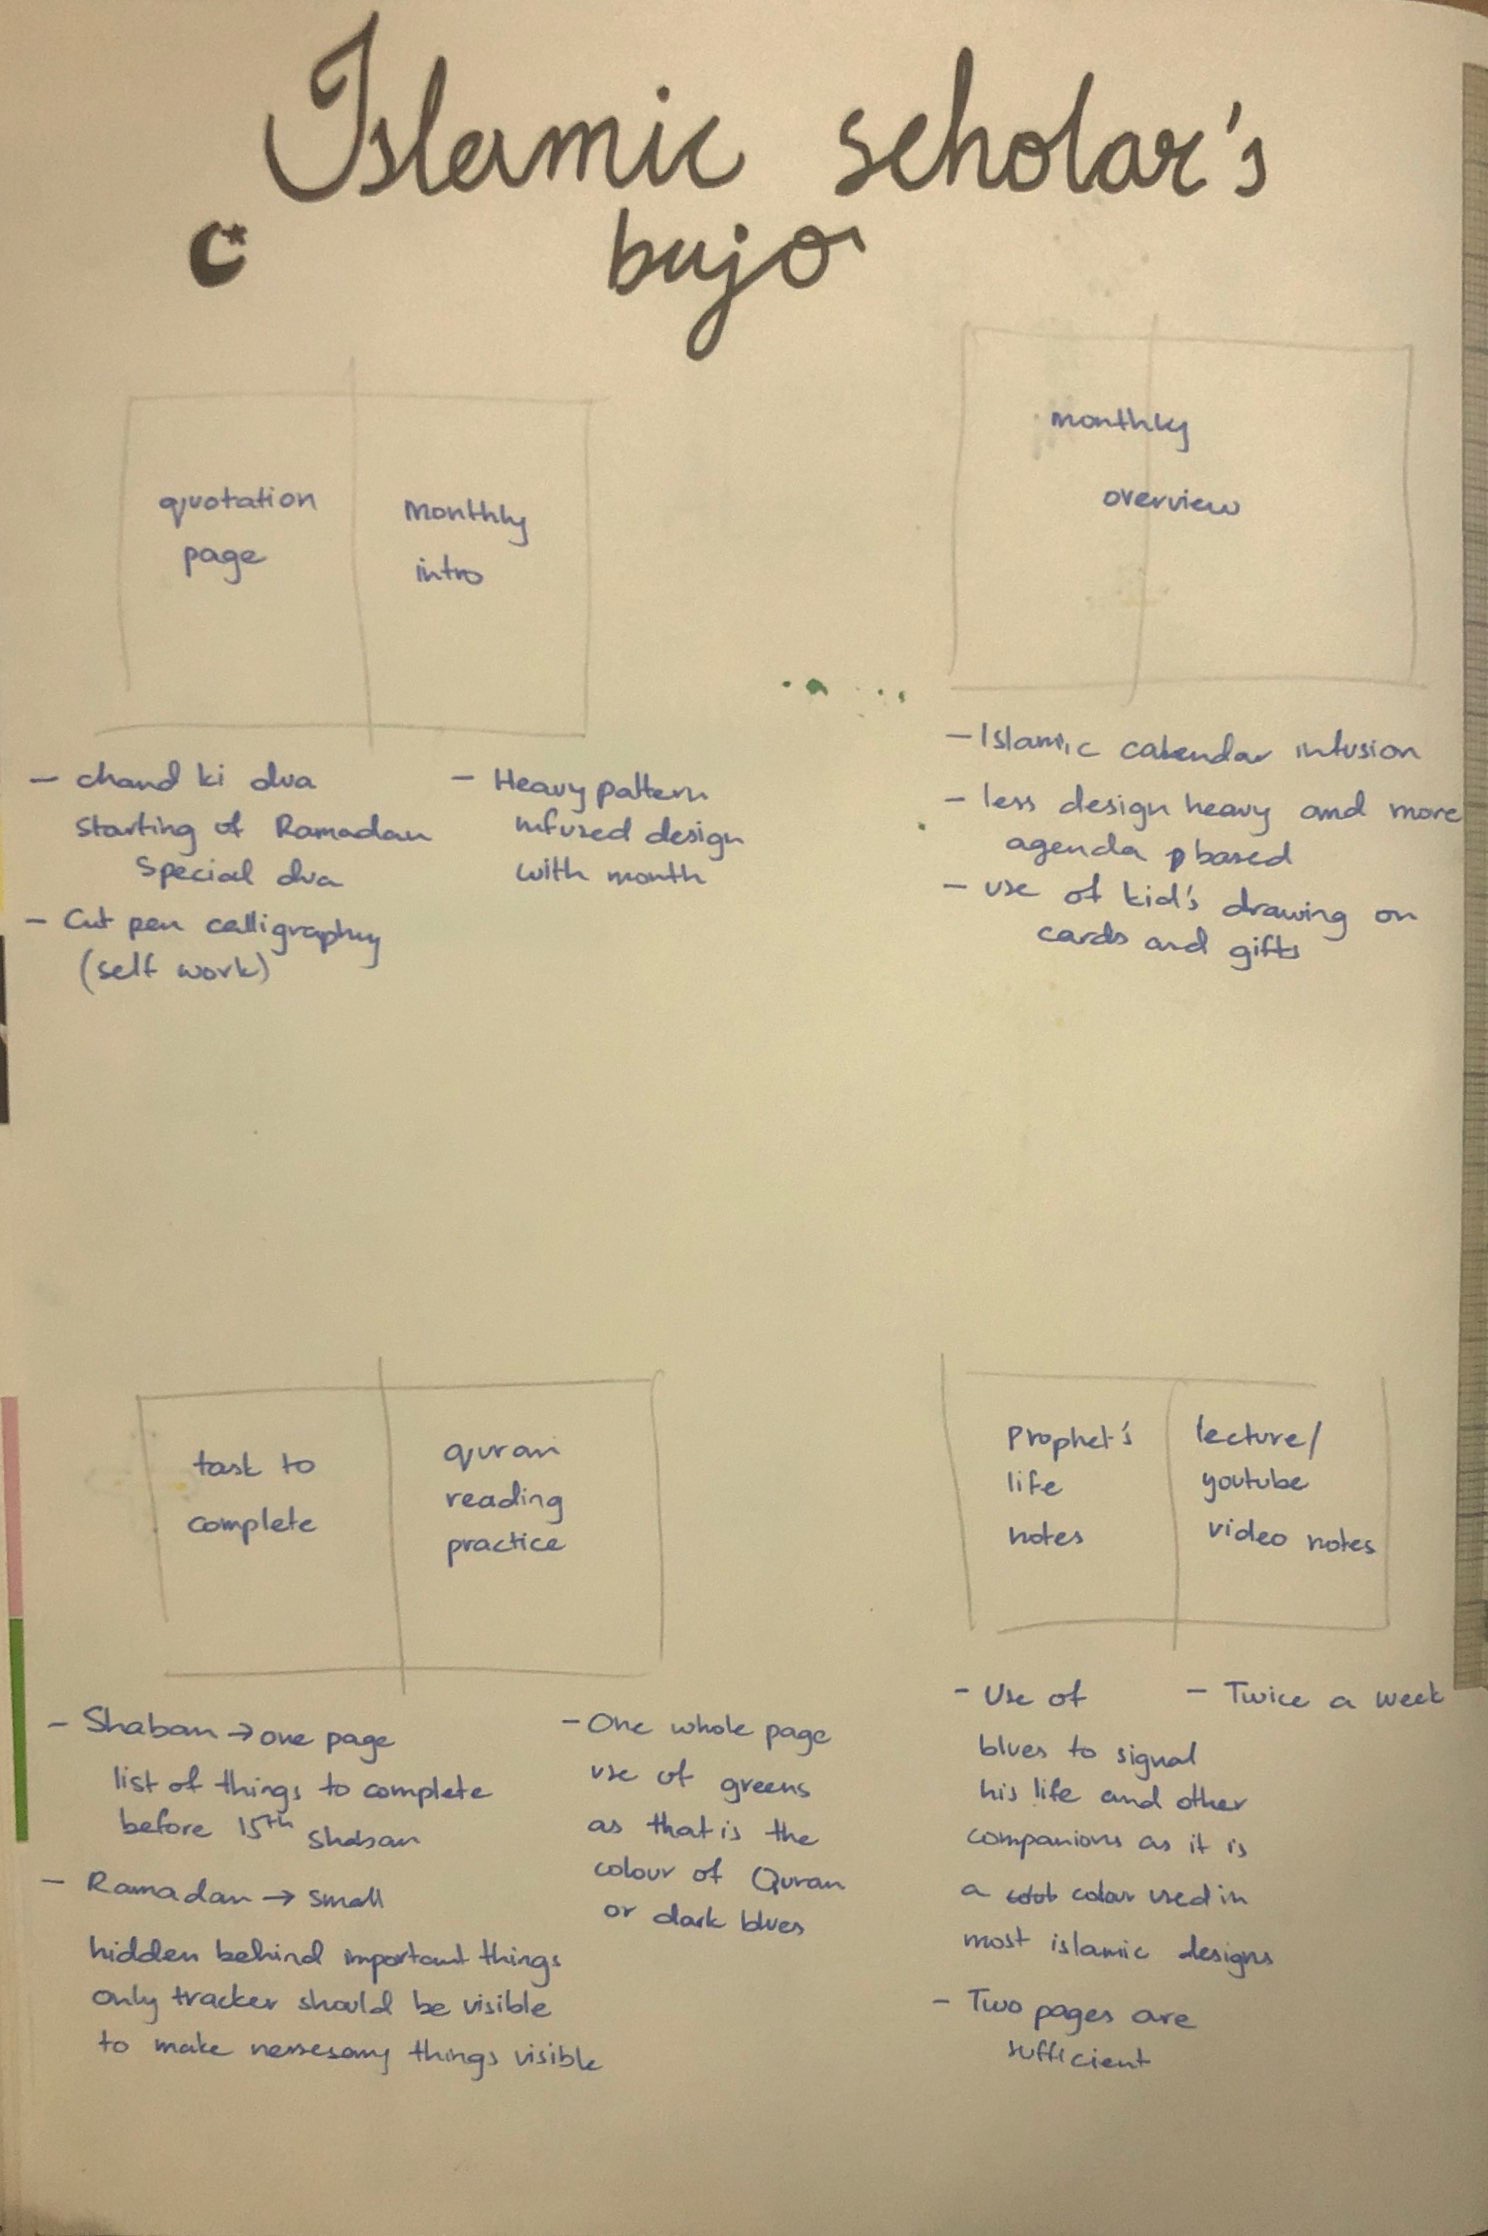 Islamic scholar's
bujo
quotation
page
Monthly
intro
- chand ki dua
starting of Ramadan
special dua
- Cut pen calligraphy
(self work)
- Heavy pattern
infused design
with month
monthly
overview
- Islamic calendar infusion
- less design heavy and more
agenda based
- use of kid's drawing on
cards and gifts
task to
complete
quran
reading
practice
- Shaban → one page
list of things to complete
before 15th Shaban
- Ramadan → small
hidden behind important things
only tracker should be visible
to make nessesarry things visible
- One whole page
use of greens
as that is the
colour of Quran
or dark blues
Prophet's
life
notes
lecture/
youtube
video notes
- Use of
blues to signal
his life and other
companions as it is
a colour used in
most islamic designs
- Two pages are
sufficient
- Twice a week